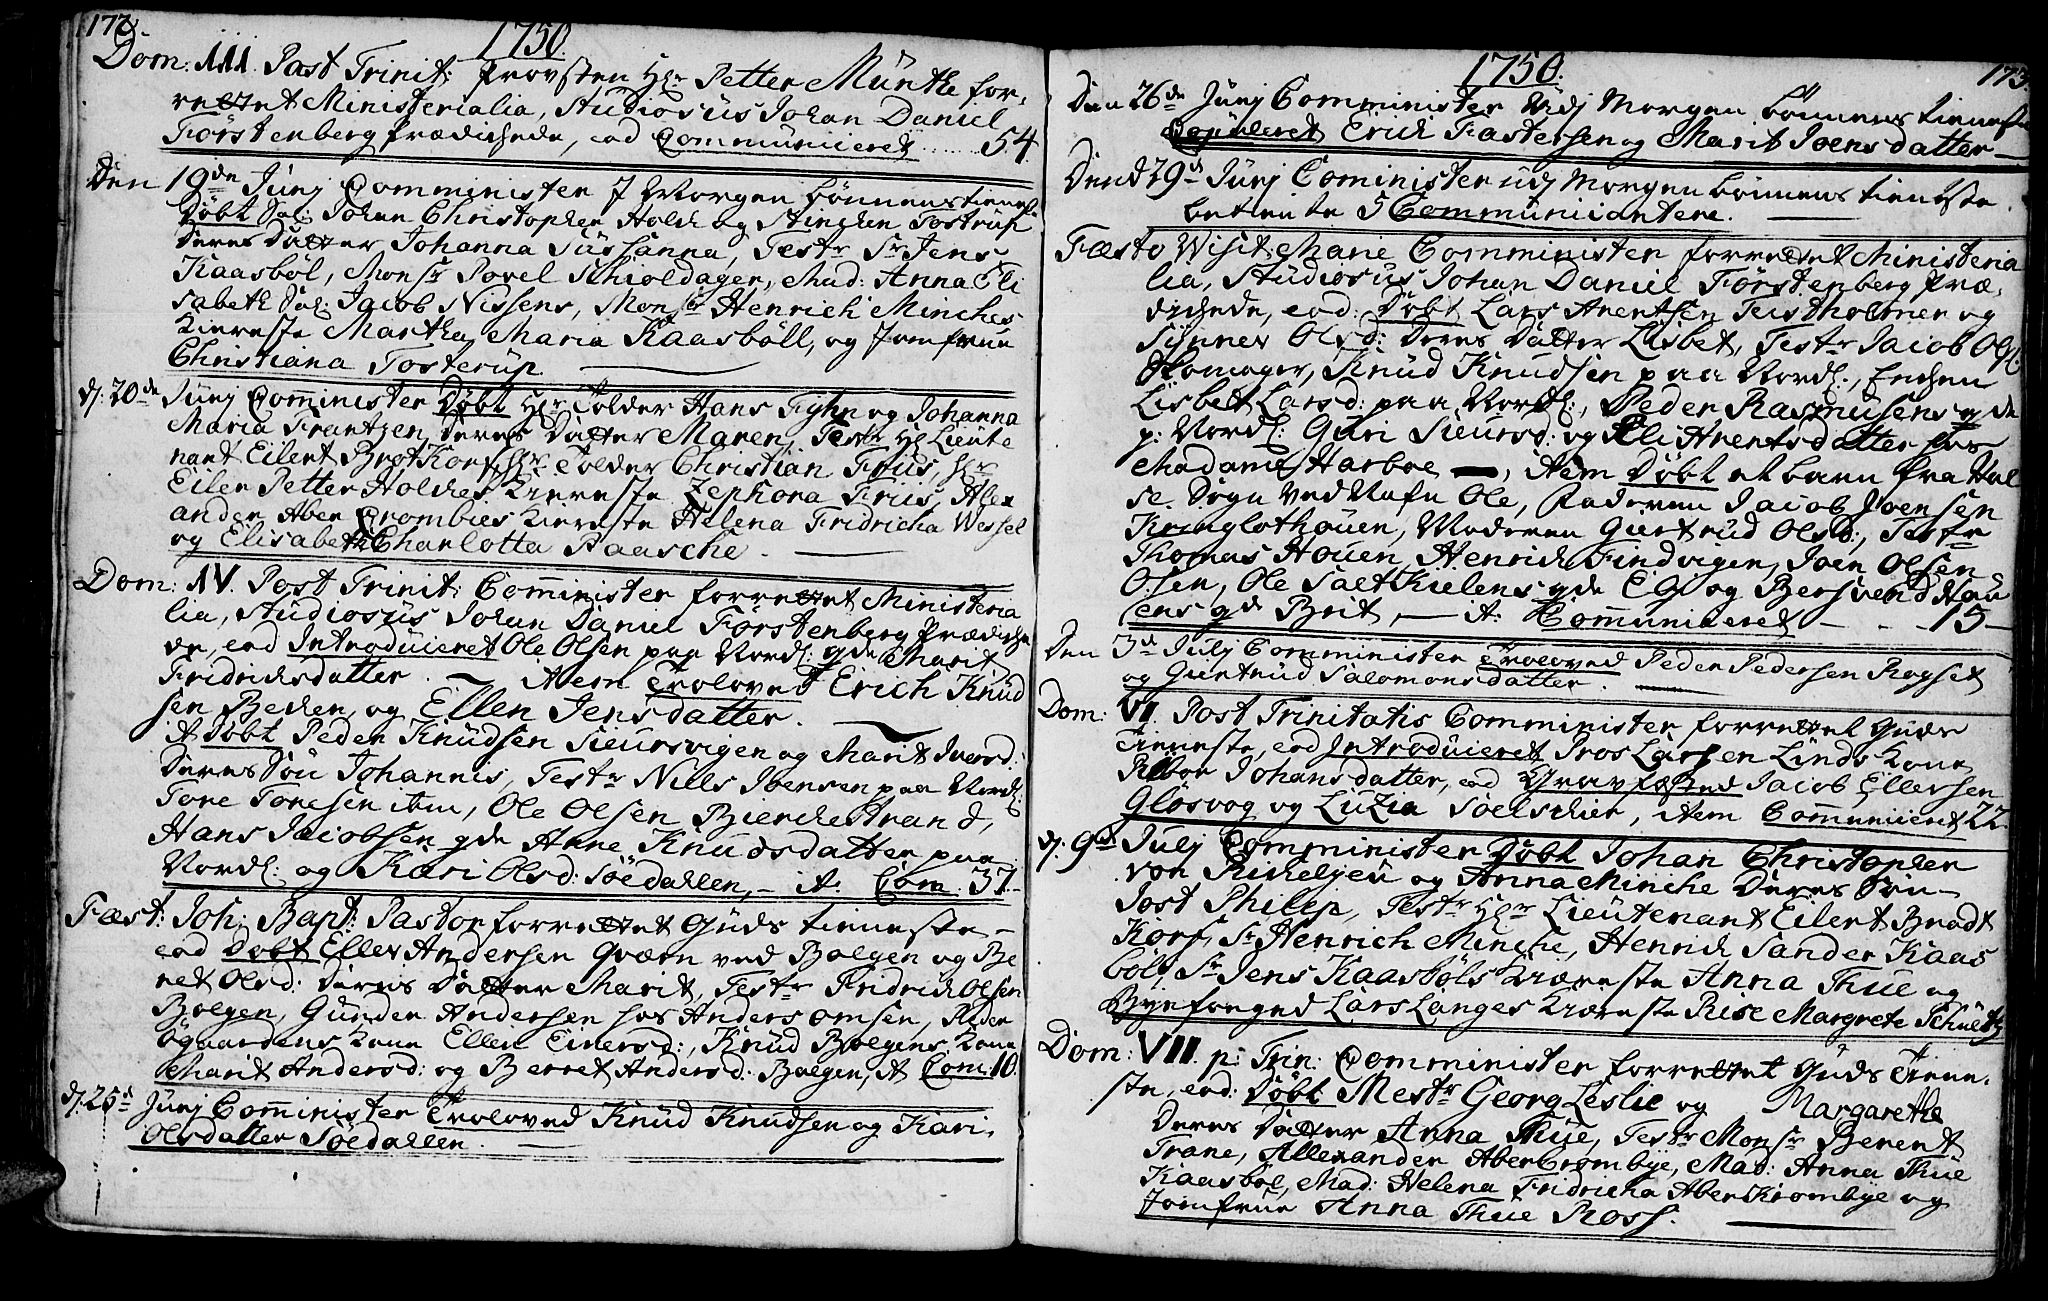 172.
1750.
Dom: III. Past Trinit: Provsten Hr Petter Münthe for,
rettet Ministerialia, Studiosus Johan Daniel
Førstenberg Prædichede, eod Communiceret ..... 54.
Den 19de Junj Comminister J Morgen bønnens tieneste
Døbt Sal: Johan Christopher Holch og Stinchen Tostrup
deres Datter Johanna Süssanna, Testr Sr Jens
Kaasbøl, Monsr Povel Schioldager, Mad: Anna Eli
sabeth Sal: Jacob Nissens, Monsr Henrich Minches
Kiereste Martha Maria Kaasbøll, og Jomfrue
Christiana Tosterup
d: 20de Junj Comminister Døbt Hr Tolder Hans Fyhn og Johanna
Maria Frantzen, deres Datter Maren, Testr Hr Lieute
nant Eilert Brot Korf, Hr Tolder Christian Friis, Hr
Eiler Petter Holches Kiereste Zephora Friis, Alex
ander Aber Crombies Kiereste Helena Fridricha Wessel
og Elisabeth Charlotta Paasche.
Dom: IV. Post Trinit: Comminister forrettet Ministeria
lia, Studiosus Johan Daniel Førstenberg Prædiche
de, eod Introduceret Ole Olsen paa Nordl: gde Marit
Fridrichsdatter. Item Troloved Erich Knüd
sen Bechen, og Ellen Jensdatter.
It Døbt Peder Knudsen Sieursvigen og Marit Iversd:
deres Søn Johannis, Testr Niels Joensen paa Nordl:
Tore Toresen ibm, Ole Olsen Bierchestrand,
Hans Jacobsen gde Anne Knudsdatter paa
Nordl: og Kari Olsd: Søedallen, It: Com: 37.
Fæst: Joh: Bapt: Pastor forrettet Guds tieneste
eod Døbt Eller Andersen Qværn ved Bolgen og Be
ret Olsd: deres Datter Marit, Testr Fridrich Olsen
Bolgen, Gunder Andersen hos Anders Omsen, Peder
Øgaardens Kone Ellen Einersd:, Knud Bolgens Kone
Marit Andersd: og Berret Andersd: Bolgen, It Com: 10.
d: 25d Junj Comminister Troloved Knud Knudsen og Kari
Olsdatter Søedallen.
1750.
173.
Den 26de Junj Comminister Vdj Morgen bønnens tieneste
Copuleret Erich Fastersen og Marit Joensdatter
Dend 29d Junj Cominister udj Morgen bønnens tieneste
betiente 5 Communicantere.
Fæsto Visit: Marie Comminister forrettet Ministeria
lia, Studiosus Johan Daniel Førstenberg Præ,
dichede, eod: Døbt Lars Arentsen Teistholmen og
Synnev Olsd: deres Datter Lisbet, Testr Jacob Ols:
Skomager, Knud Knudsen paa Nordl:, Enchen
Lisbet Larsd: paa Nordl:, Peder Rasmusens gde
p: Nordl: Guri Sieursd: og Eli Arentsdatter hos
Madame Harboe, Item Døbt et barn fra Hal
se Sogn Ved Nafn Ole, Faderen Jacob Joensen
Kringlothouen, Moderen Giertrud Olsd:, Testr
Thomas Houen, Henrich Findvigen, Joen Olsen
Olsen, Ole Saetkielens gde Eli og Bersvend Hau
ens gde Brit, It: Communiceret 15
Den 3d Julj Comminister Troloved Peder Pedersen Rogset
og Giertrud Salomonsdatter.
Dom: VI. Post Trinitatis Comminister forrettet Guds
Tieneste, eod Introduceret Iros Larsen Linds Kone
Rebor Johansdatter, eod Gravfæsted Jacob Ellersen
Gløsvog og Luzia Søelscher, Item Communiceret 22.
d: 9de Julj Comminister Døbt Johan Christopher
von Richeljeu og Anna Minche deres Søn
Jost Philip, Testr Hr Lieutenant Eilert Brodt
Korf, Sr Henrich Minche, Henrich Sander Kaas
bøl, Sr Jens Kaasbøls Kiæreste Anna Thue og
Byefoged Lars Langes Kiæreste Rise Margrete Schultz
Dom: VII. p: Trin: Comminister forrettet Guds Tiene,
ste, eod: Døbt Mestr Georg Leslie og Margarethe
deres Datter Anna Thue, Testr Monsr Berent
Trane, Allexander AberCrombye, Mad: Anna Thue
Kaasbøl, Mad: Helena Fridricha AberKrombye og
Jomfrue Anna Thue Ross.